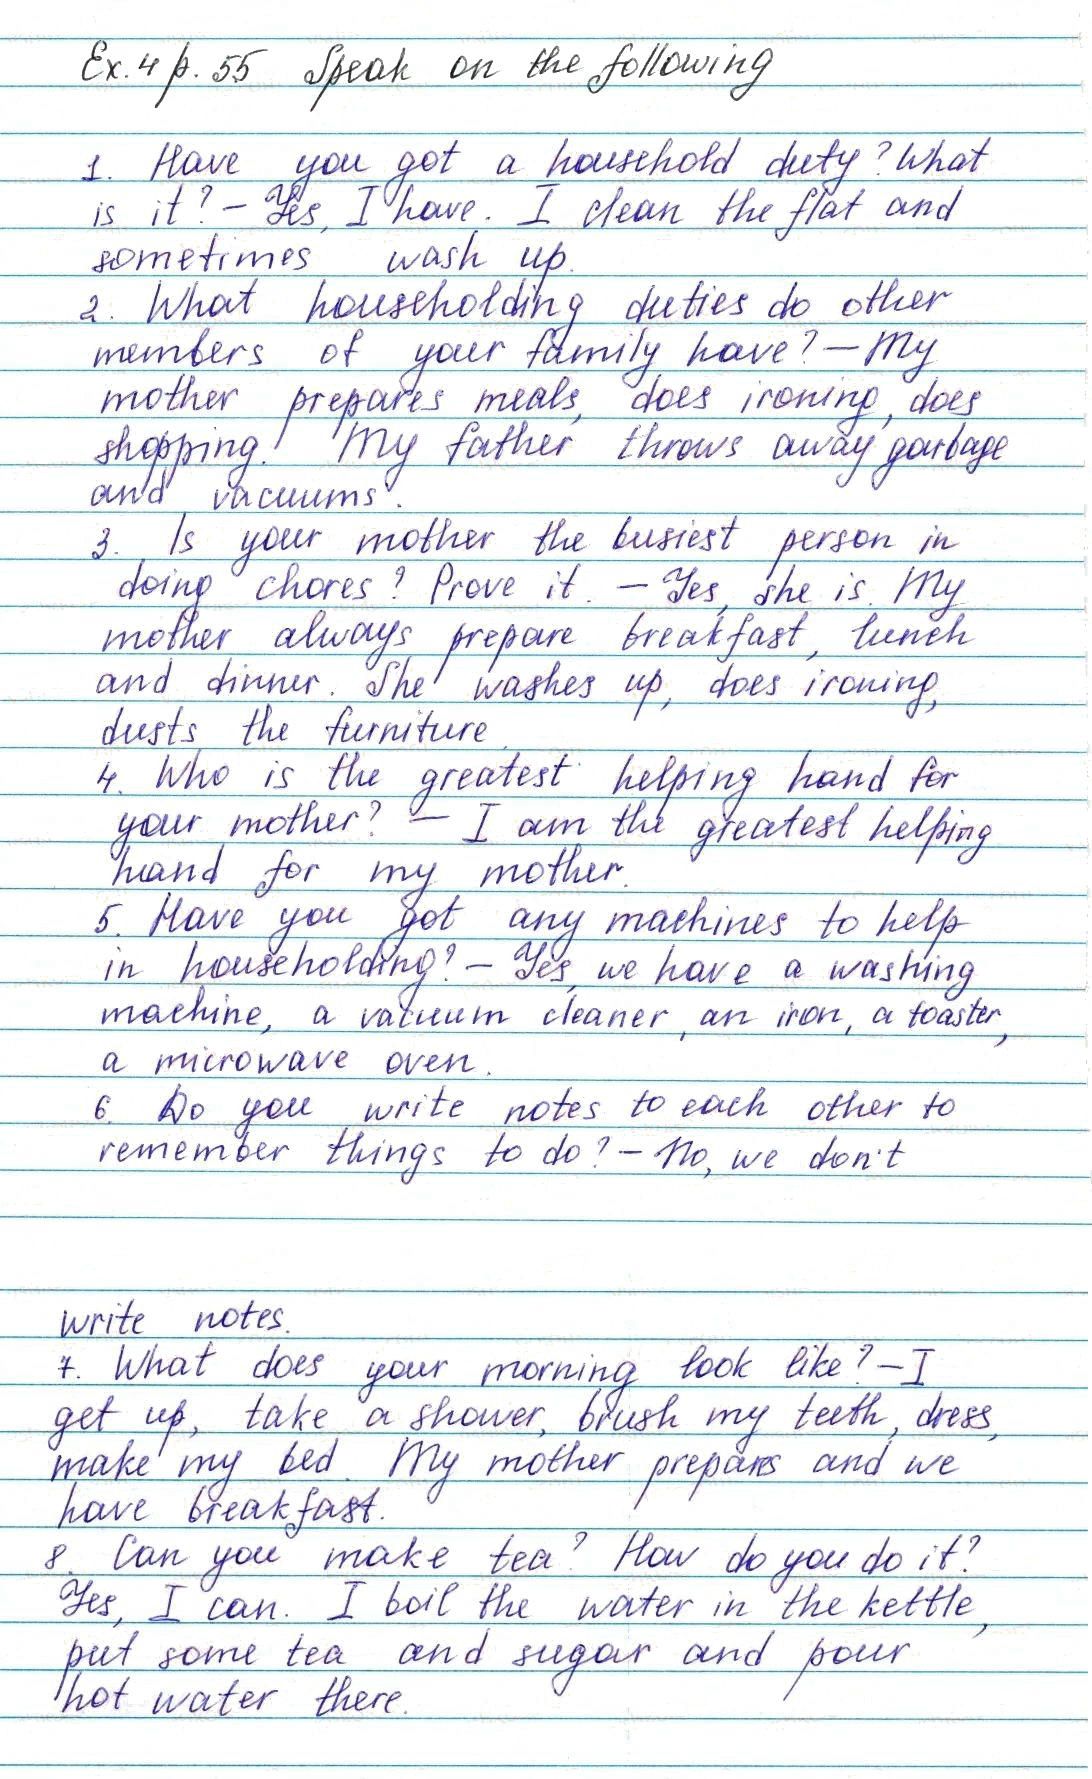 Ex. 4 p. 55 Speak on the following
1. Have you got a household duty? What
is it? – Yes, I have. I clean the flat and
sometimes wash up.
2. What householding duties do other
members of your family have? – My
mother prepares meals, does ironing, does
shopping. My father throws away garbage
and vacuums.
3. Is your mother the busiest person in
doing chores? Prove it. – Yes, she is. My
mother always prepare breakfast, lunch
and dinner. She washes up, does ironing,
dusts the furniture.
4. Who is the greatest helping hand for
your mother? – I am the greatest helping
hand for my mother.
5. Have you got any machines to help
in householding? – Yes, we have a washing
machine, a vacuum cleaner, an iron, a toaster,
a microwave oven.
6. Do you write notes to each other to
remember things to do? – No, we don't
write notes.
7. What does your morning look like? – I
get up, take a shower, brush my teeth, dress,
make my bed. My mother prepares and we
have breakfast.
8. Can you make tea? How do you do it?
Yes, I can. I boil the water in the kettle,
put some tea and sugar and pour
hot water there.